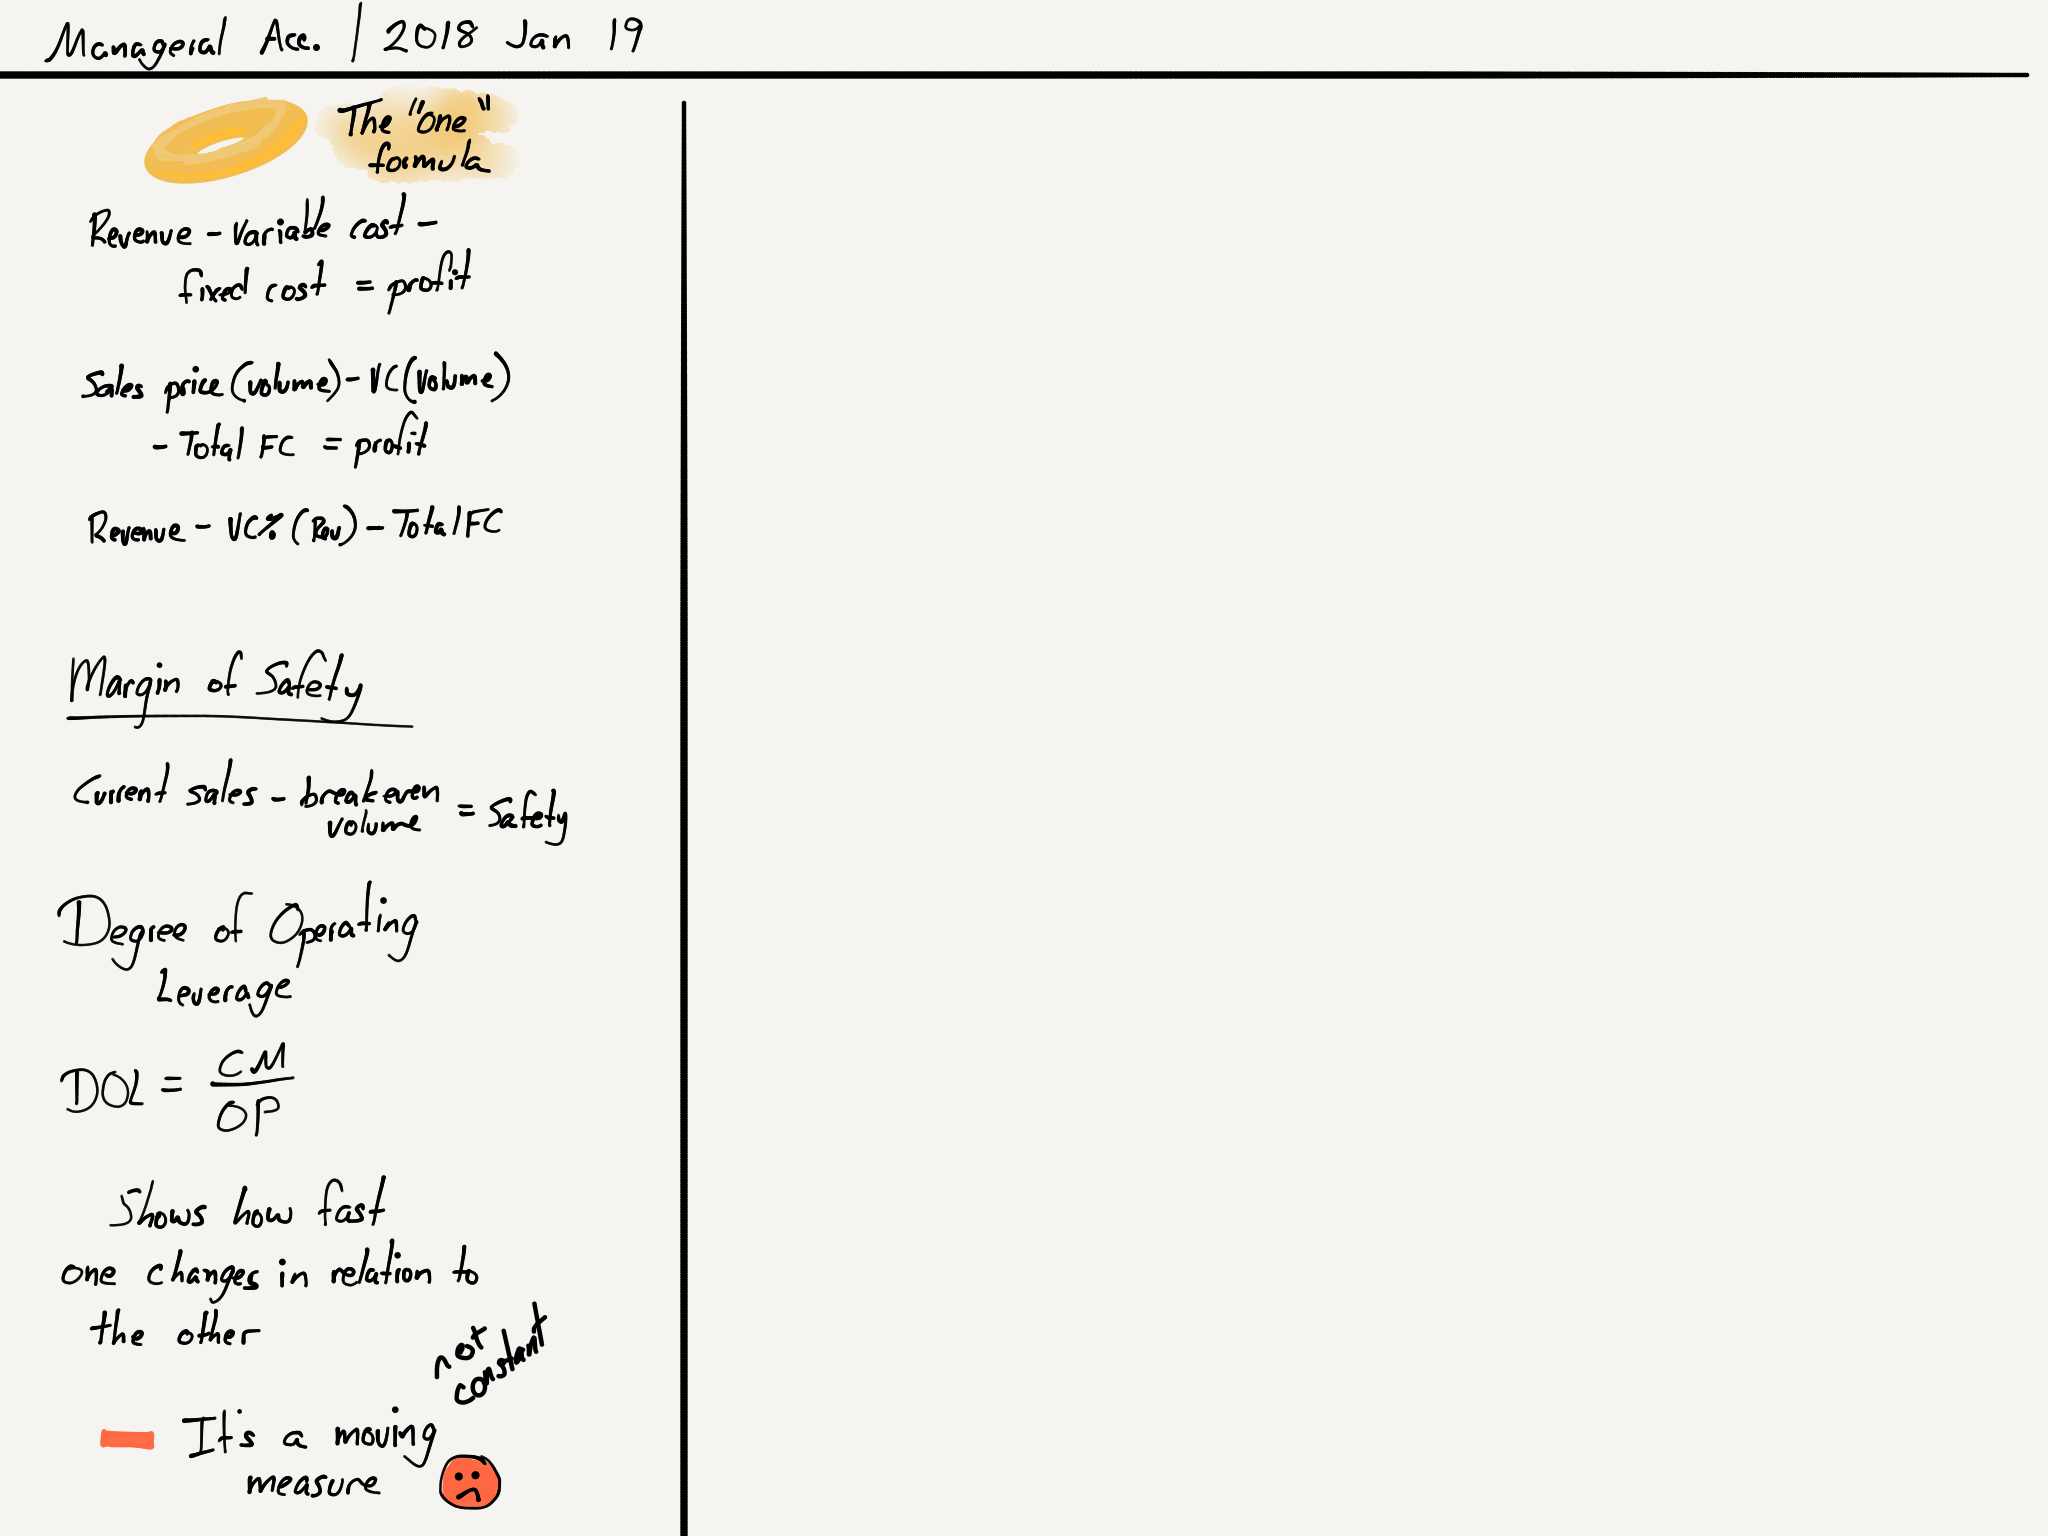 Managerial Acc. | 2018 Jan 19
The "one"
formula
Revenue - Variable cost -
fixed cost = profit
Sales price (volume) - VC (Volume)
- Total FC = profit
Revenue - VC% (Rev) - Total FC
Margin of Safety
Current sales - breakeven
volume = Safety
Degree of Operating
Leverage
DOL = CM
OP
Shows how fast
one changes in relation to
the other
not
constant
It's a moving
measure